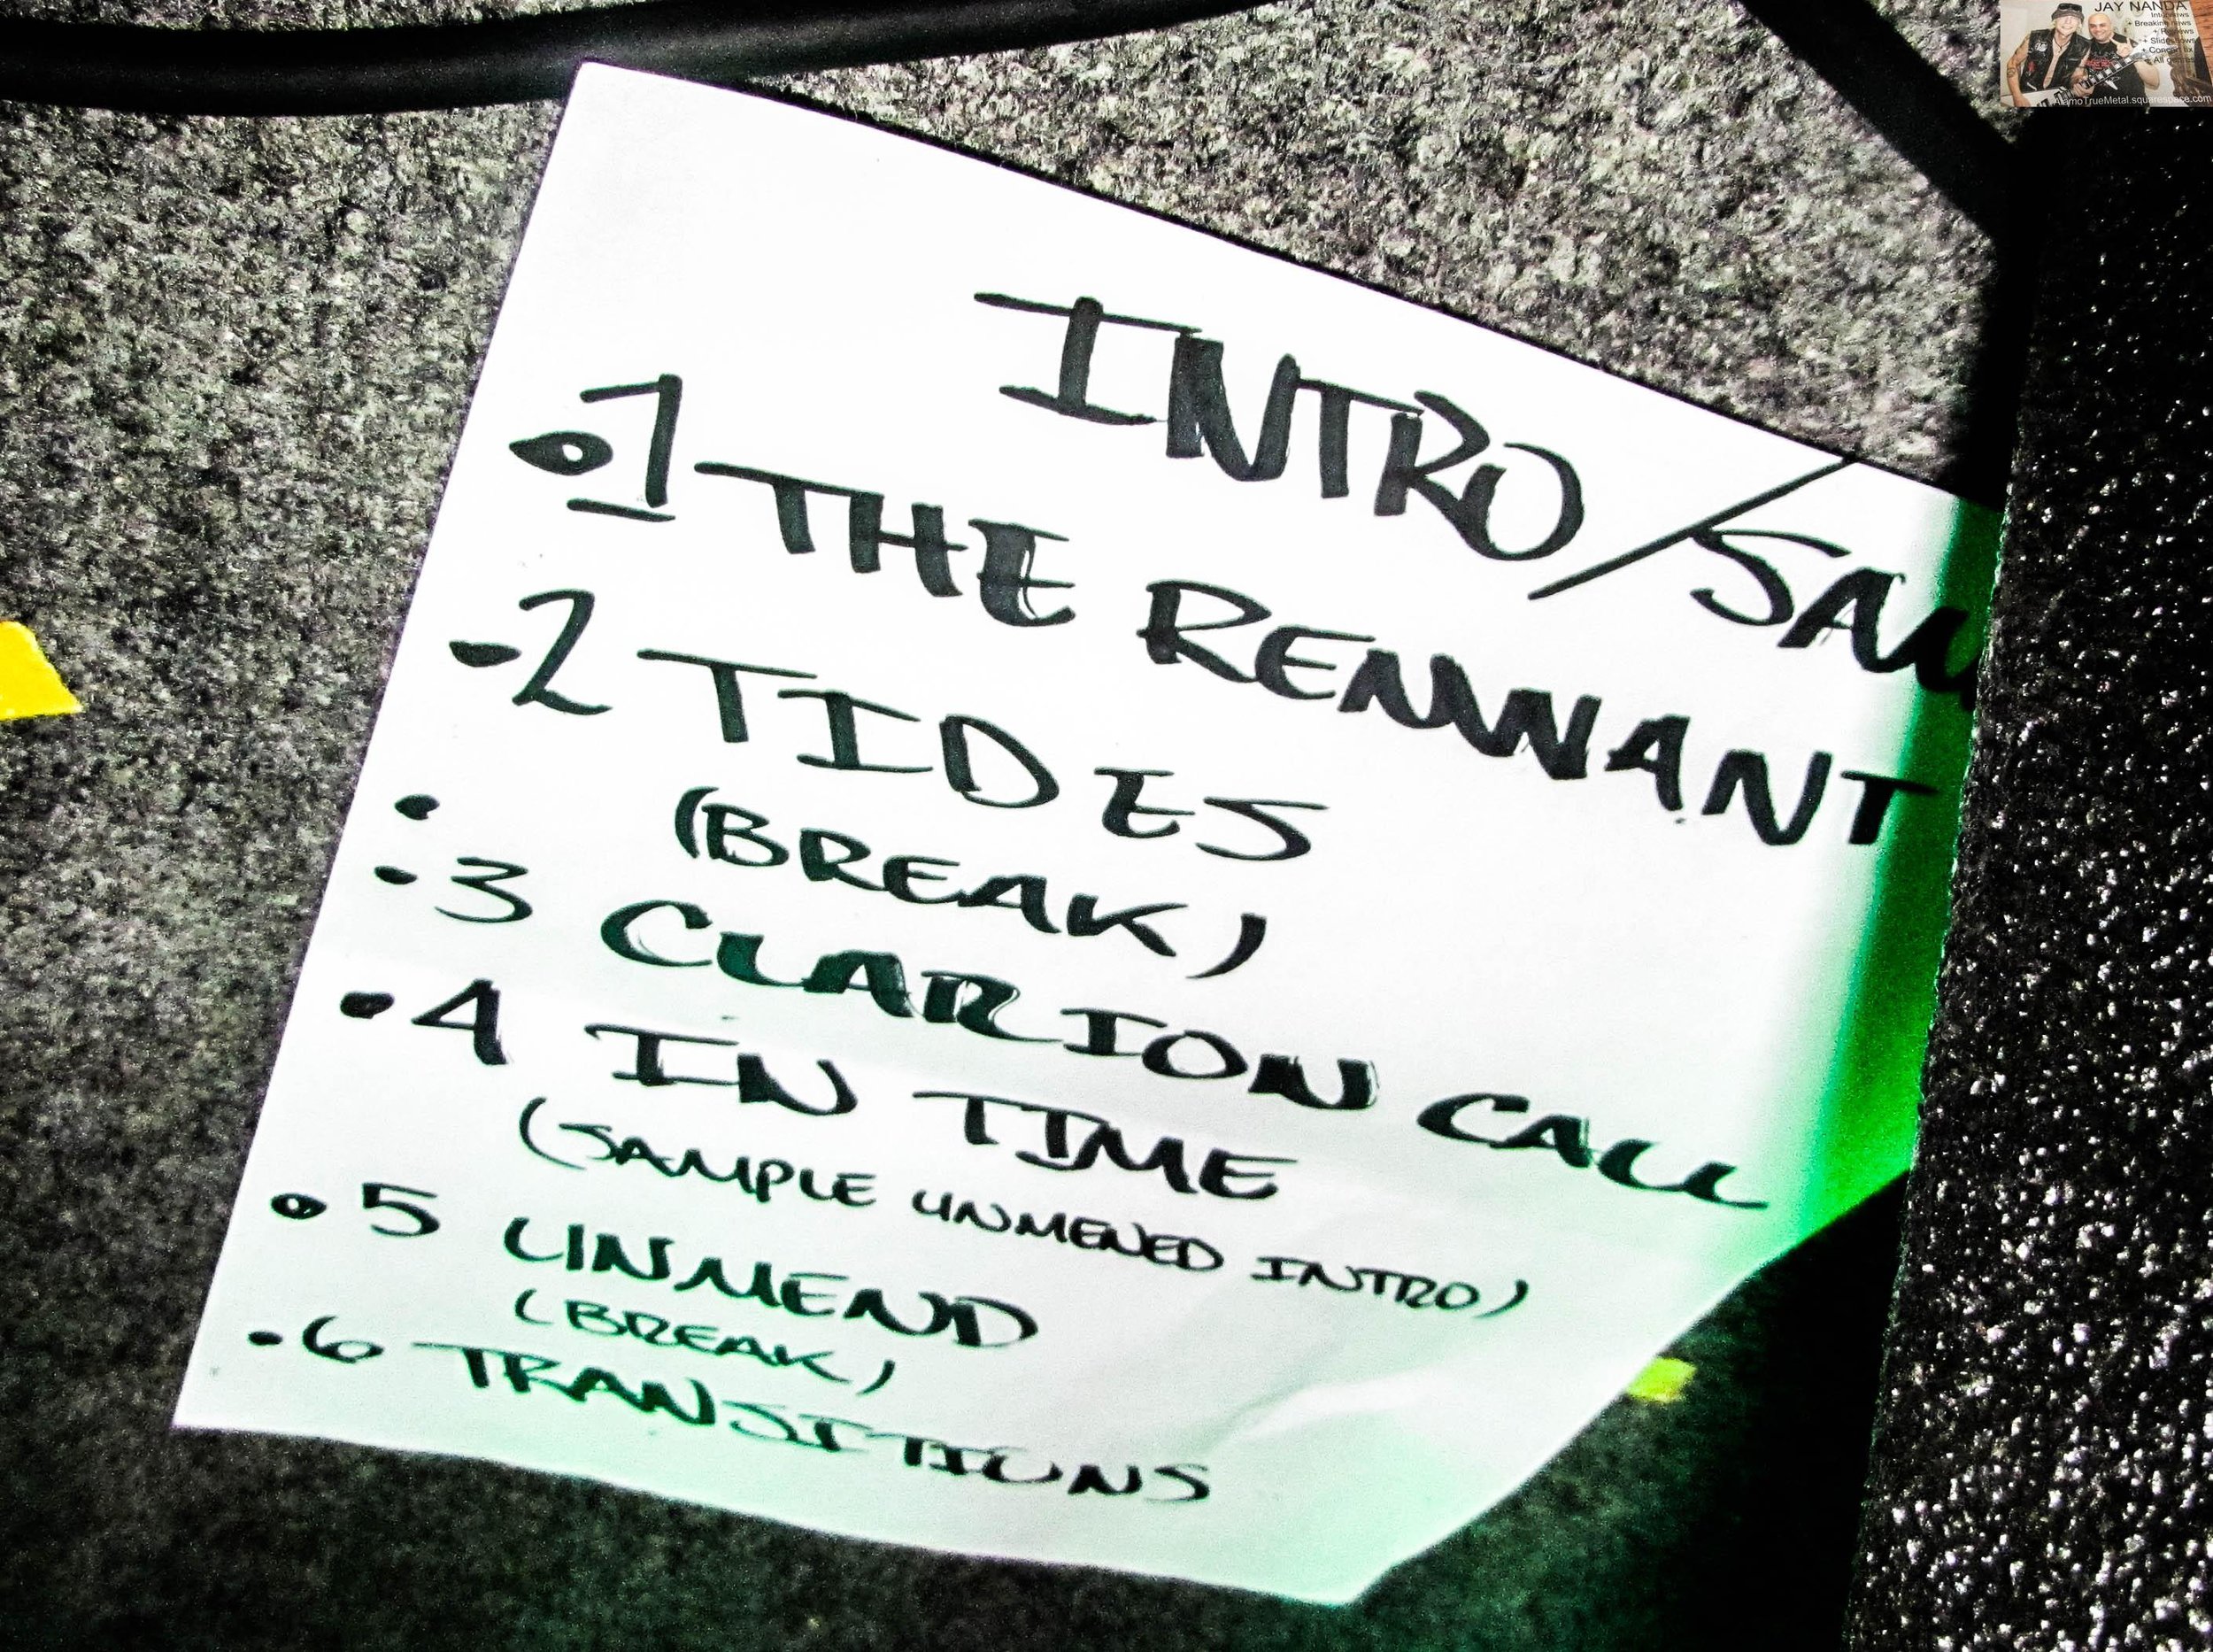 JAY NANDA
Interviews
+ Breaking news
+ Reviews
+ Slideshows
+ Concert fix
AlamoTrueMetal.squarespace.com
INTRO/
1 THE REMNANT
-2 TIDES
• (BREAK)
-3 CLARION CALL
• 4 IN TIME
(SAMPLE UNMENED INTRO)
• 5 UNMEND
(BREAK)
• 6 TRANSITIONS